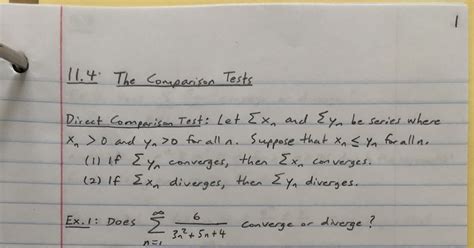 1
11.4: The Comparison Tests
Direct Comparison Test: Let Σxₙ and Σyₙ be series where
xₙ > 0 and yₙ > 0 for all n. Suppose that xₙ ≤ yₙ for all n.
(1) If Σyₙ converges, then Σxₙ converges.
(2) If Σxₙ diverges, then Σyₙ diverges.
Ex. 1: Does ∞Σn=1 6/(3n²+5n+4) converge or diverge?